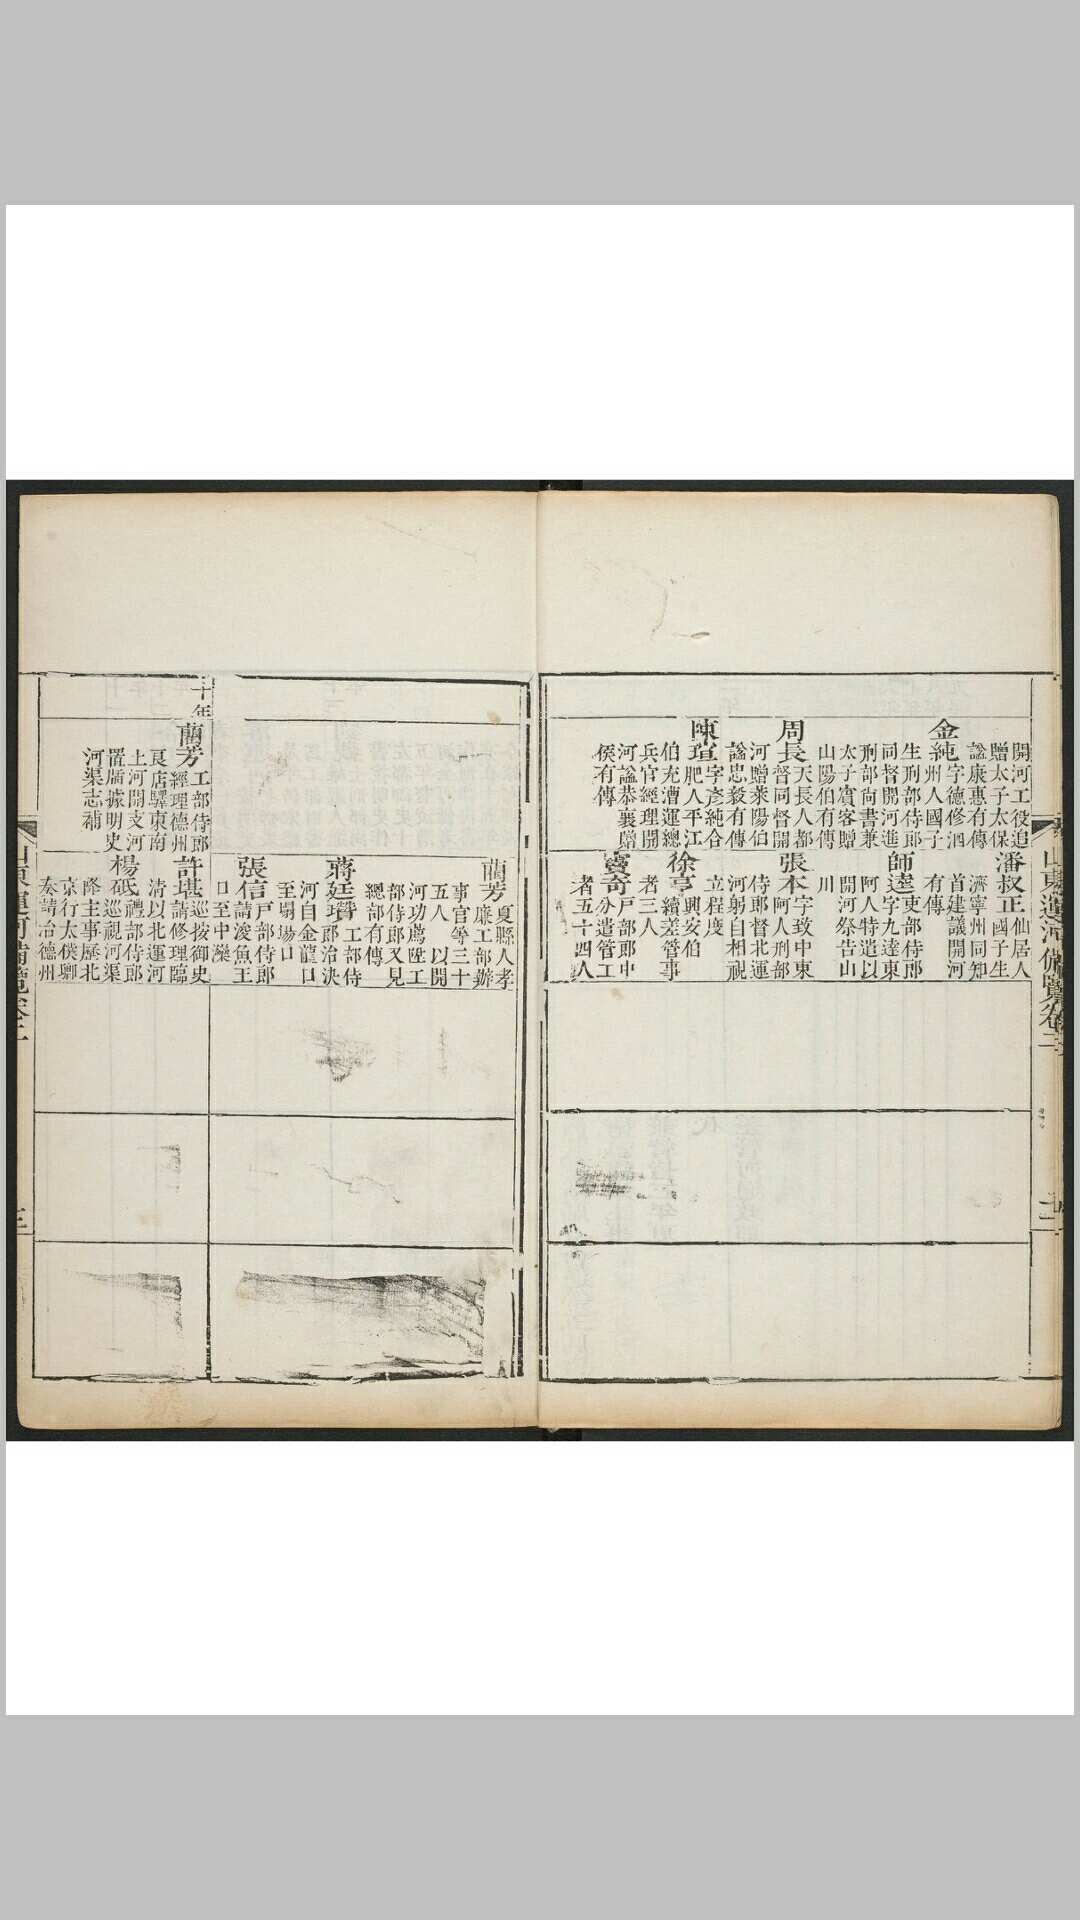 開河工役追
贈太子太保
諡康惠有傳
金純字德修泗
州人國子
生刑部侍郎
同督開河進
刑部尚書兼
太子賓客贈
山陽伯有傳
周長天長人都
督同督開
河贈萊陽伯
諡忠毅有傳
陳瑄字彥純合
肥人平江
伯充漕運總
兵官經理開
河諡恭襄贈
侯有傳
潘叔正仙居人
國子生
濟寧州同知
首建議開河
有傳
師逵吏部侍郎
字九達東
阿人特遣以
開河祭告山
川
張本字致中東
阿人刑部
侍郎督北運
河躬自相視
立程度
徐亨興安伯
續差管事
者三人
竇奇戶部郎中
分遣管工
者五十四人
山東運河備覽卷二
藺芳夏縣人孝
廉工部辦
事官等三十
五人以開
河功薦陞工
部侍郎又見
總部有傳
蔣廷瓚工部侍
郎治決
河自金龍口
至塌場口
張信戶部侍郎
請浚魚王
口至中灤
十年
藺芳工部侍郎
經理德州
良店驛東南
土河開支河
置牐據明史
河渠志補
許堪巡按御史
請修理臨
清以北運河
楊砥禮部侍郎
巡視河渠
降主事歷北
京行太僕卿
奏請治德州